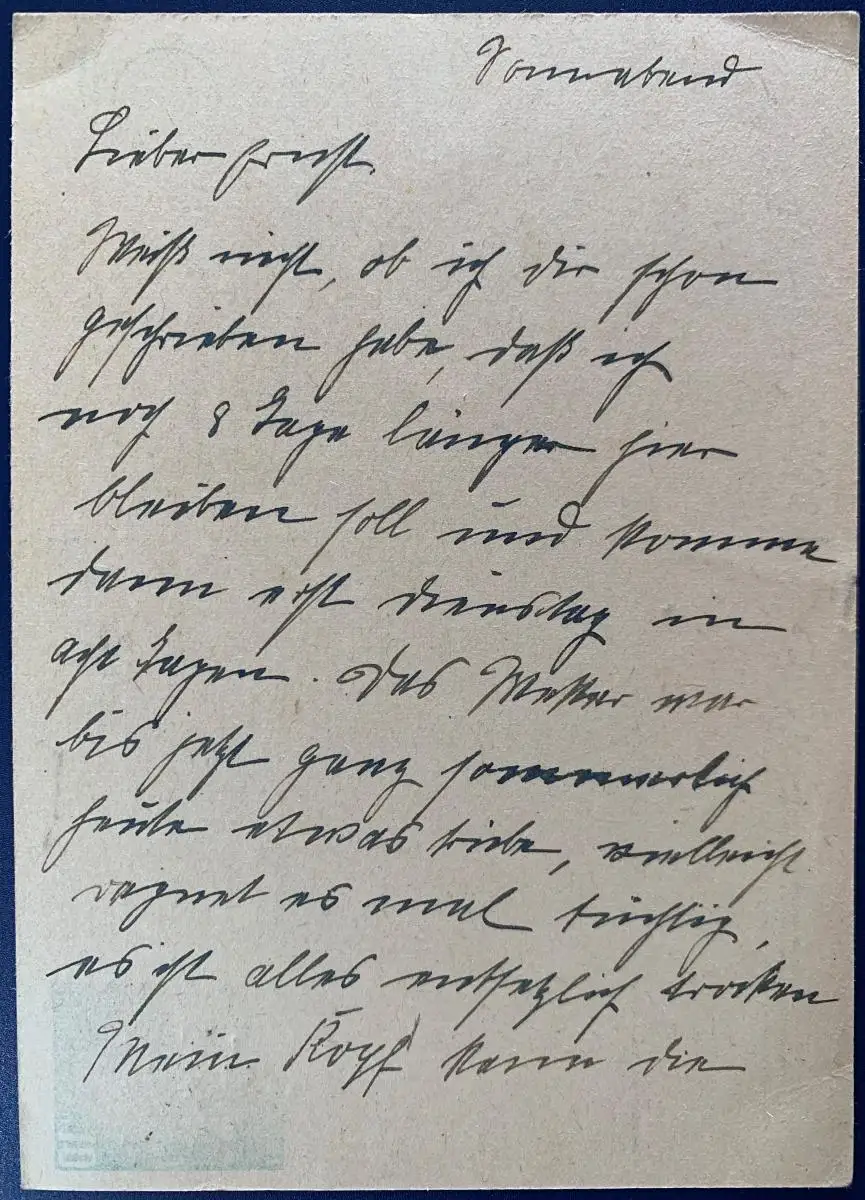 Sonnabend
Lieber Ernst.
Weiß nicht, ob ich dir schon
geschrieben habe, daß ich
noch 8 Tage länger hier
bleiben soll und komme
dann erst Dienstag in
acht Tagen. Das Wetter war
bis jetzt ganz sommerlich
heute etwas triebe, vielleicht
regnet es mal tüchtig,
es ist alles entsetzlich trocken
Mein Kopf kann die